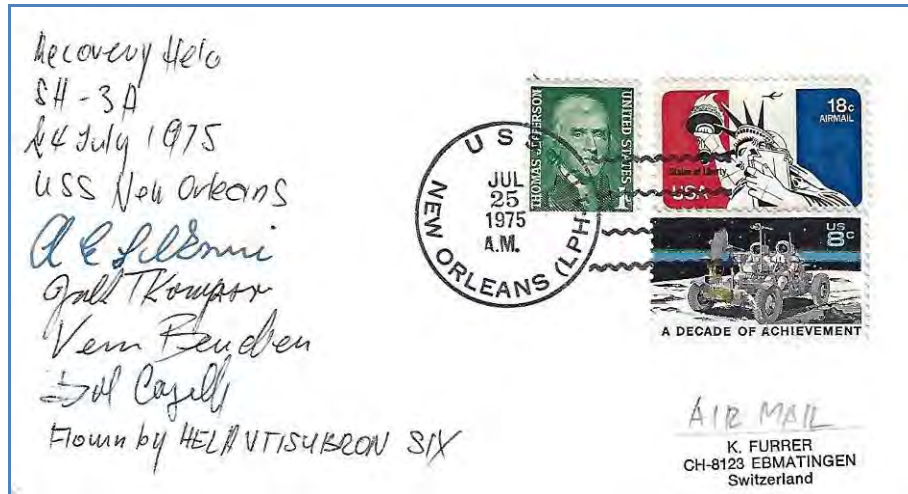 Recovery Helo
SH-3A
24 July 1975
USS New Orleans
Vern
Flown by HELANTISUBRON SIX
USS
NEW ORLEANS (LPH-
JUL
25
1975
A.M.
THOMAS JEFFERSON
UNITED STATES
1c
18c
AIRMAIL
Statue of Liberty
USA
US
8c
A DECADE OF ACHIEVEMENT
AIR MAIL
K. FURRER
CH-8123 EBMATINGEN
Switzerland